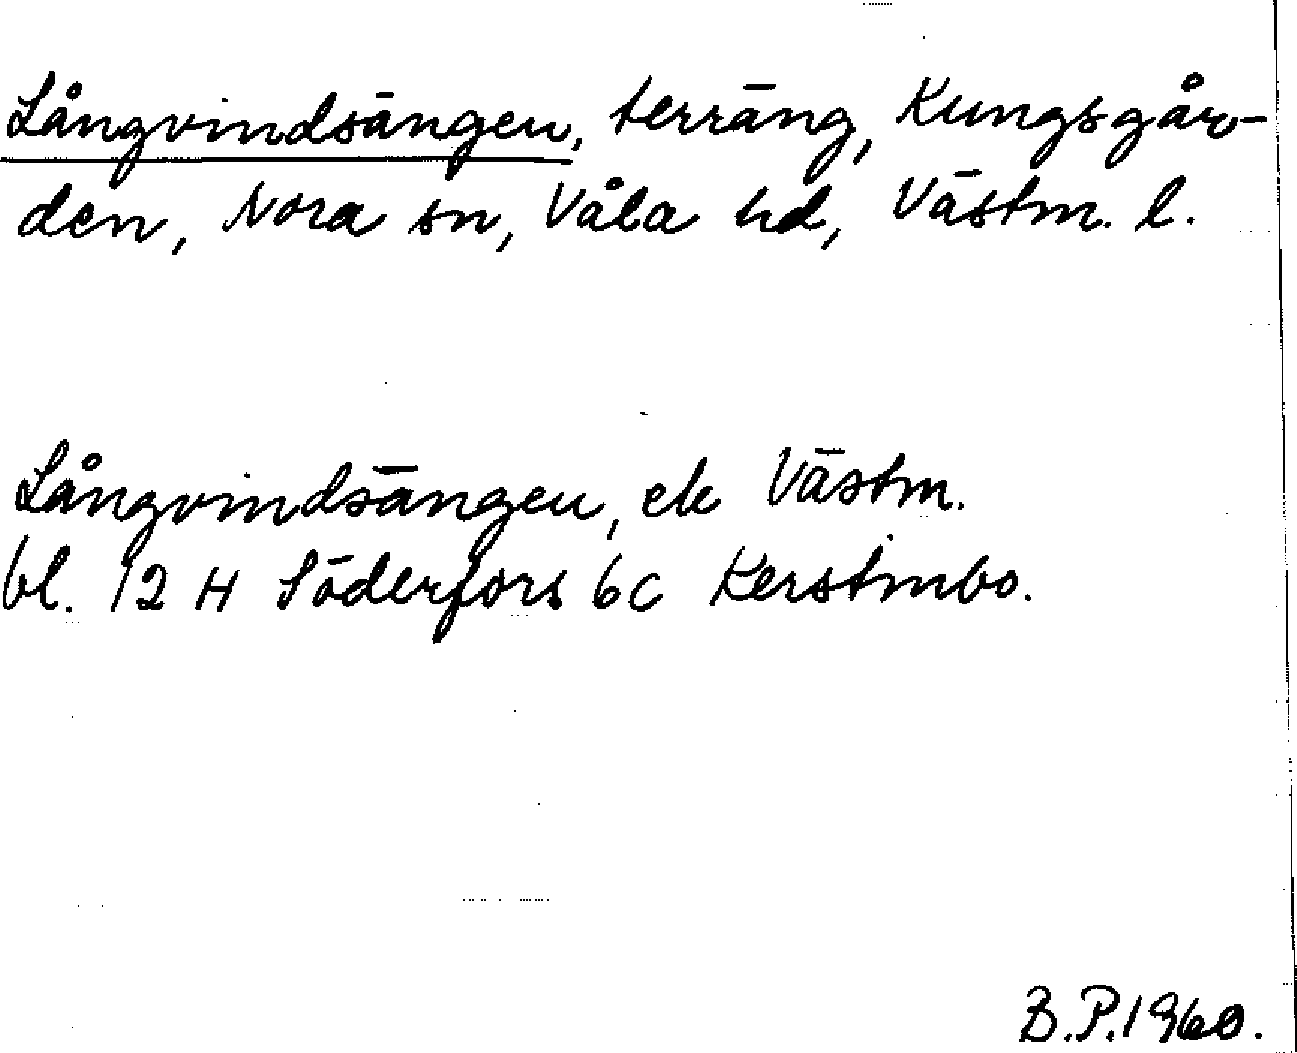 Långvindsängen, terräng, Kungsgår-
den, Nora sn, Våla hd, Västm. l.
Långvindsängen, ek Västm.
bl. 12 H Söderfors 6c Kerstinbo.
B.P. 1960.